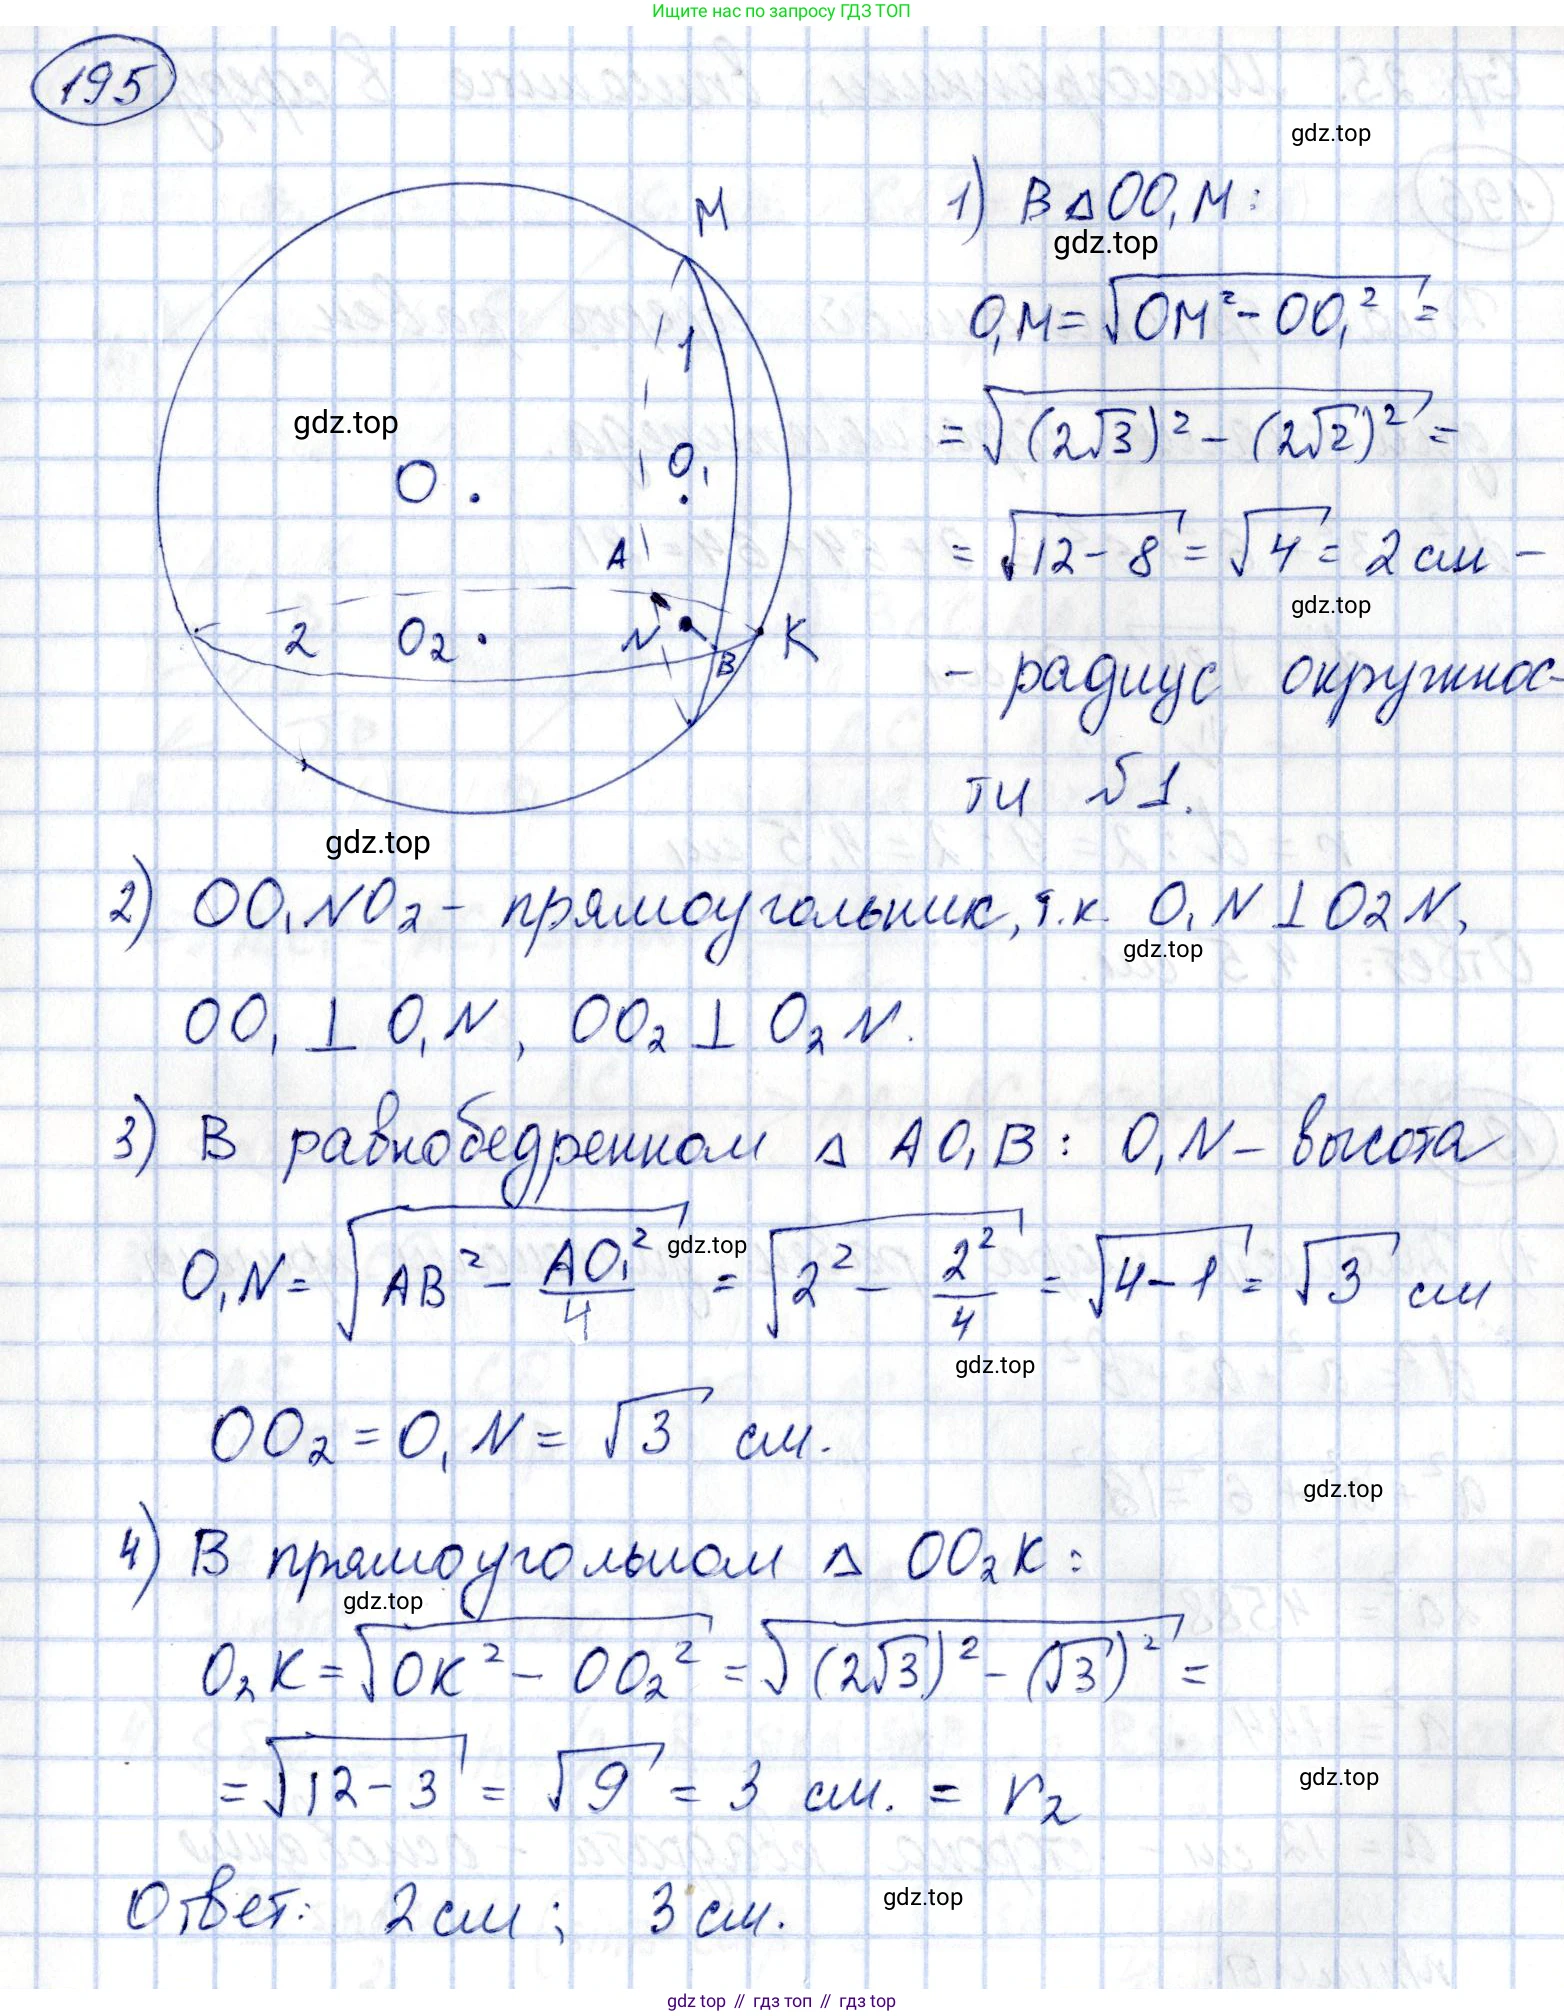 Ищите нас по запросу ГДЗ ТОП
195
gdz.top
M
1) В △OO₁M:
gdz.top
O₁M = √(OM² − OO₁²) =
1
gdz.top
= √((2√3)² − (2√2)²) =
O
O₁
A
= √(12 − 8) = √4 = 2 см −
gdz.top
2
O₂
N
B
K
− радиус окружнос-
ти №1.
gdz.top
2) OO₁NO₂ − прямоугольник, т.к. O₁N ⊥ O₂N,
gdz.top
OO₁ ⊥ O₁N, OO₂ ⊥ O₂N.
3) В равнобедренном △ AO₁B: O₁N − высота
O₁N = √(AB² − AO₁²/4) = √(2² − 2²/4) = √(4 − 1) = √3 см
gdz.top
gdz.top
OO₂ = O₁N = √3 см.
gdz.top
4) В прямоугольном △ OO₂K:
gdz.top
O₂K = √(OK² − OO₂²) = √((2√3)² − (√3)²) =
= √(12 − 3) = √9 = 3 см. = r₂
gdz.top
Ответ: 2 см; 3 см.
gdz.top
gdz top // гдз топ // гдз top